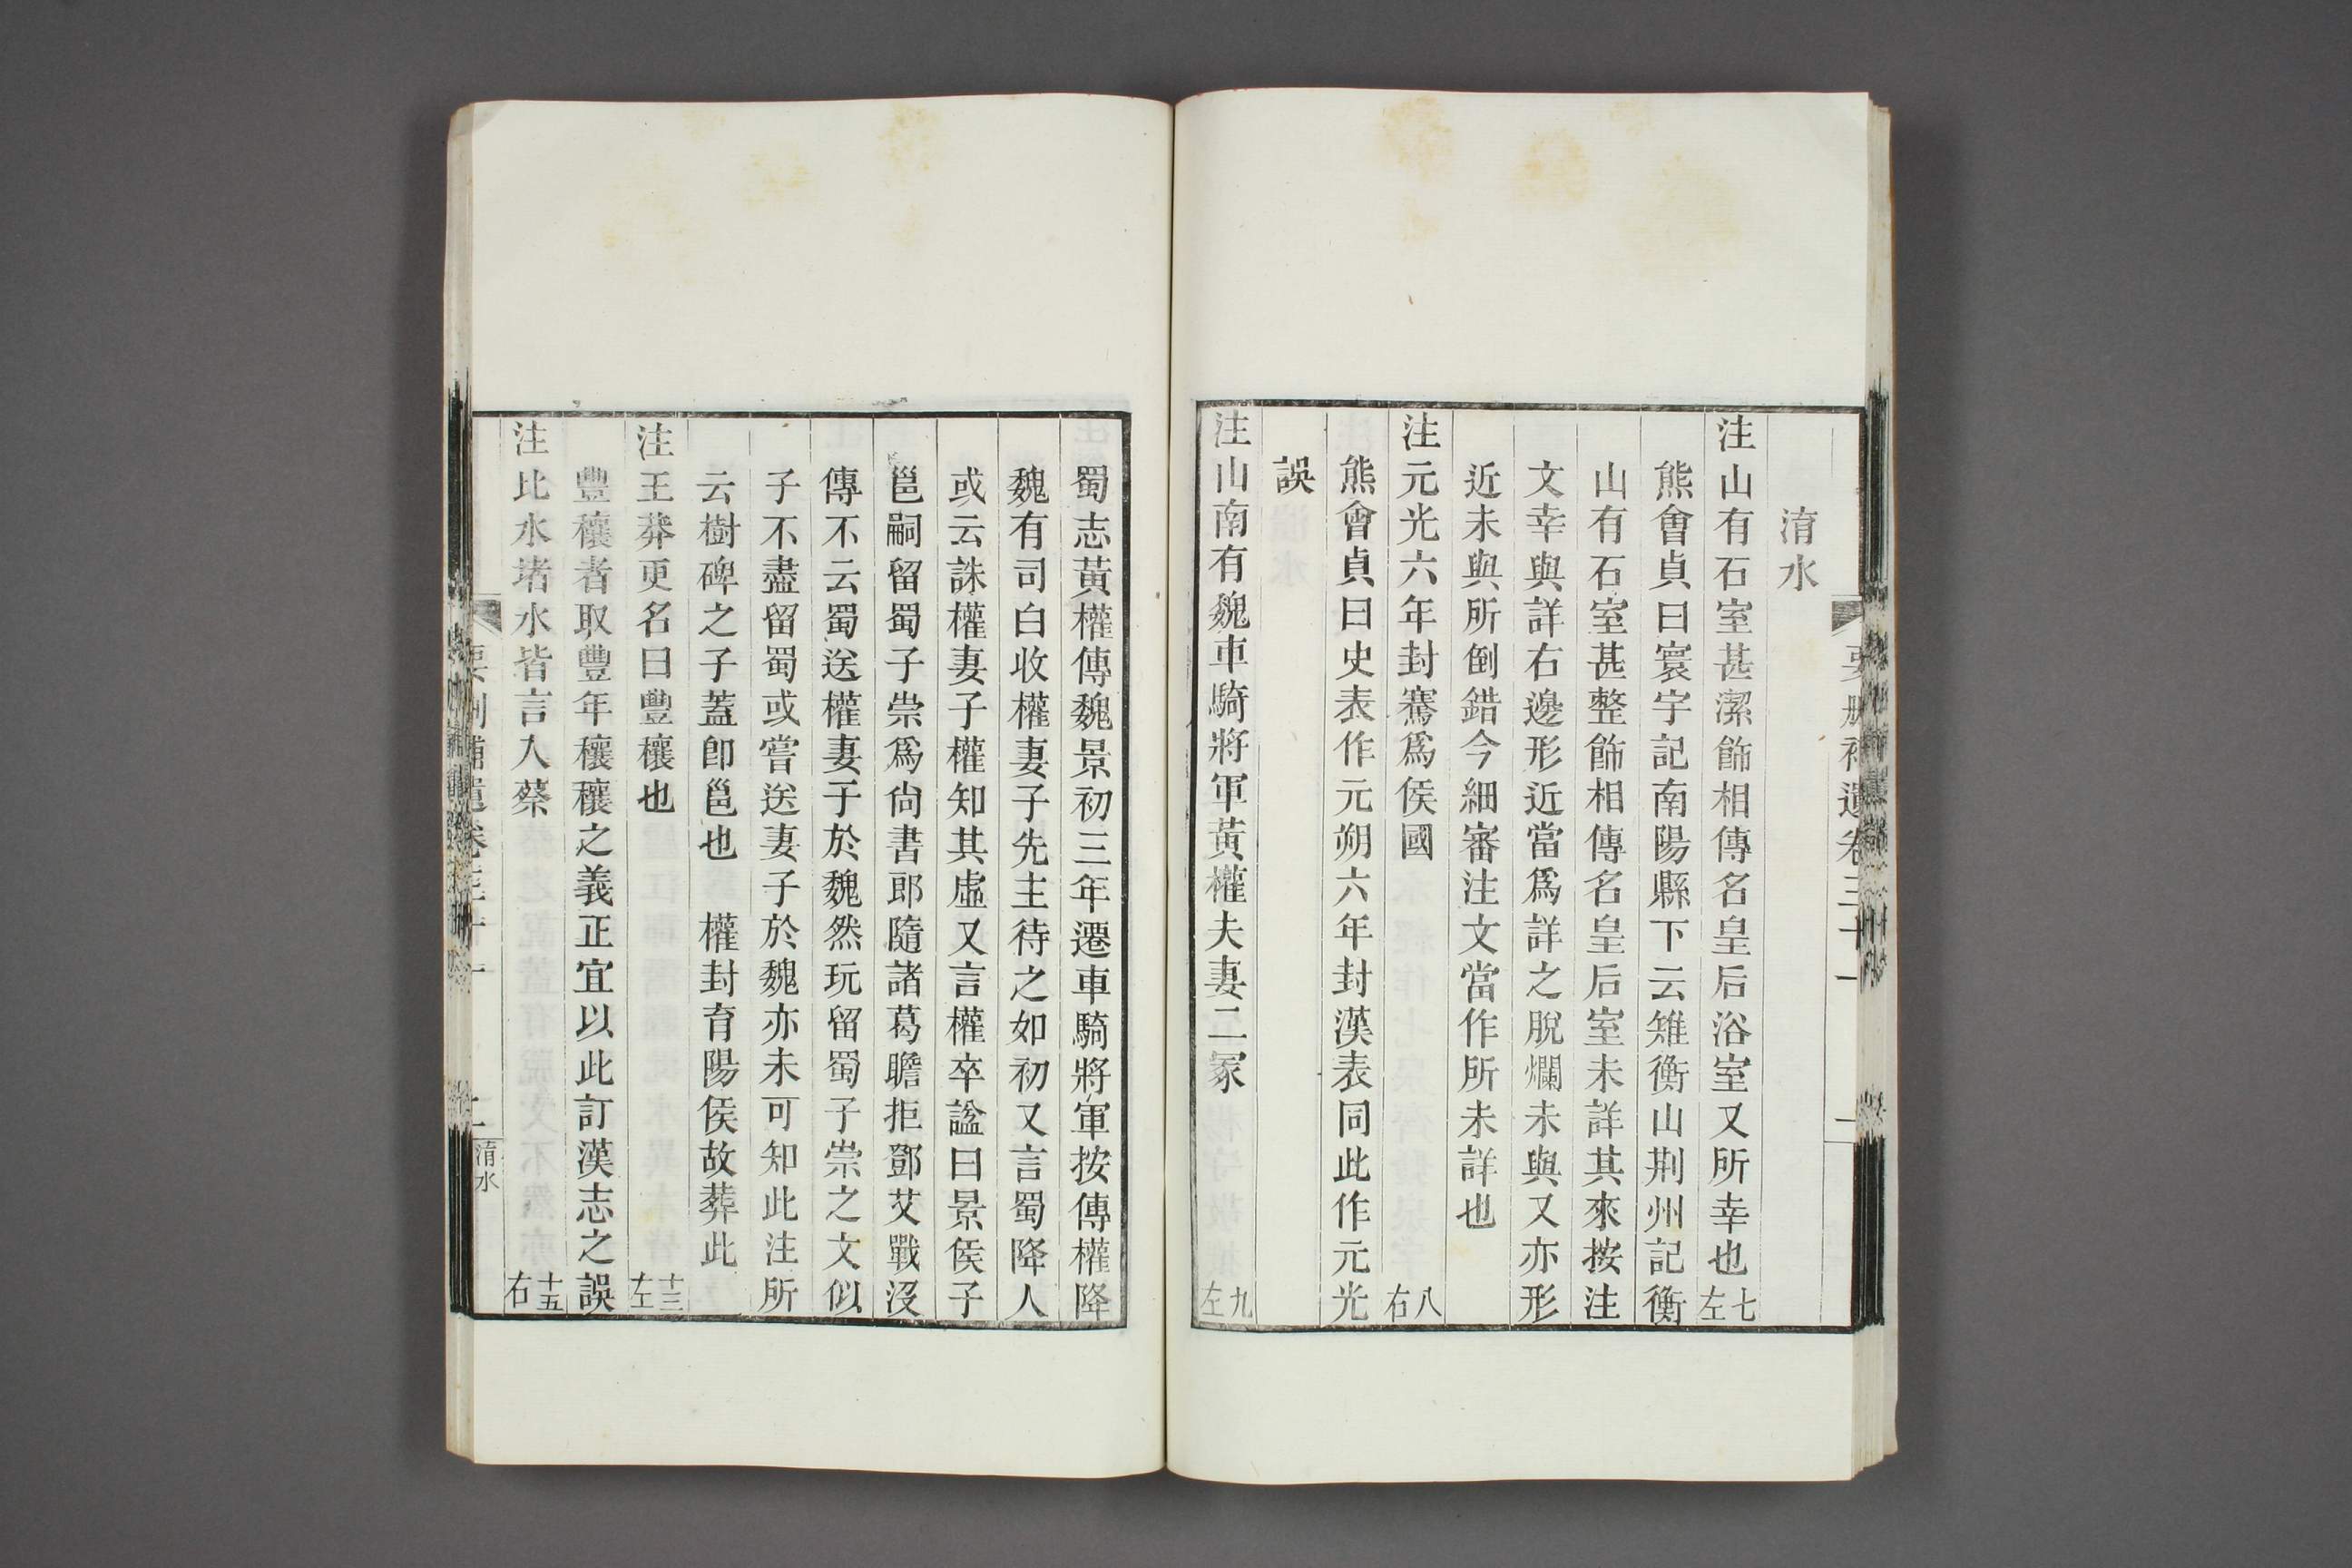 淯水
注山有石室甚潔飾相傳名皇后浴室又所幸也七左
熊會貞曰寰宇記南陽縣下云雉衡山荆州記衡
山有石室甚整飾相傳名皇后室未詳其來按注
文幸與詳右邊形近當爲詳之脫爛未與又亦形
近未與所倒錯今細審注文當作所未詳也
注元光六年封騫爲侯國八右
熊會貞曰史表作元朔六年封漢表同此作元光
誤
注山南有魏車騎將軍黃權夫妻二冢九左
蜀志黃權傳魏景初三年遷車騎將軍按傳權降
魏有司白收權妻子先主待之如初又言蜀降人
或云誅權妻子權知其虛又言權卒諡曰景侯子
邕嗣留蜀子崇爲尙書郎隨諸葛瞻拒鄧艾戰沒
傳不云蜀送權妻于於魏然玩留蜀子崇之文似
子不盡留蜀或嘗送妻子於魏亦未可知此注所
云樹碑之子蓋卽邕也　權封育陽侯故葬此
注王莽更名曰豐穰也十三左
豐穰者取豐年穰穰之義正宜以此訂漢志之誤
注比水堵水皆言入蔡十五右
淯水